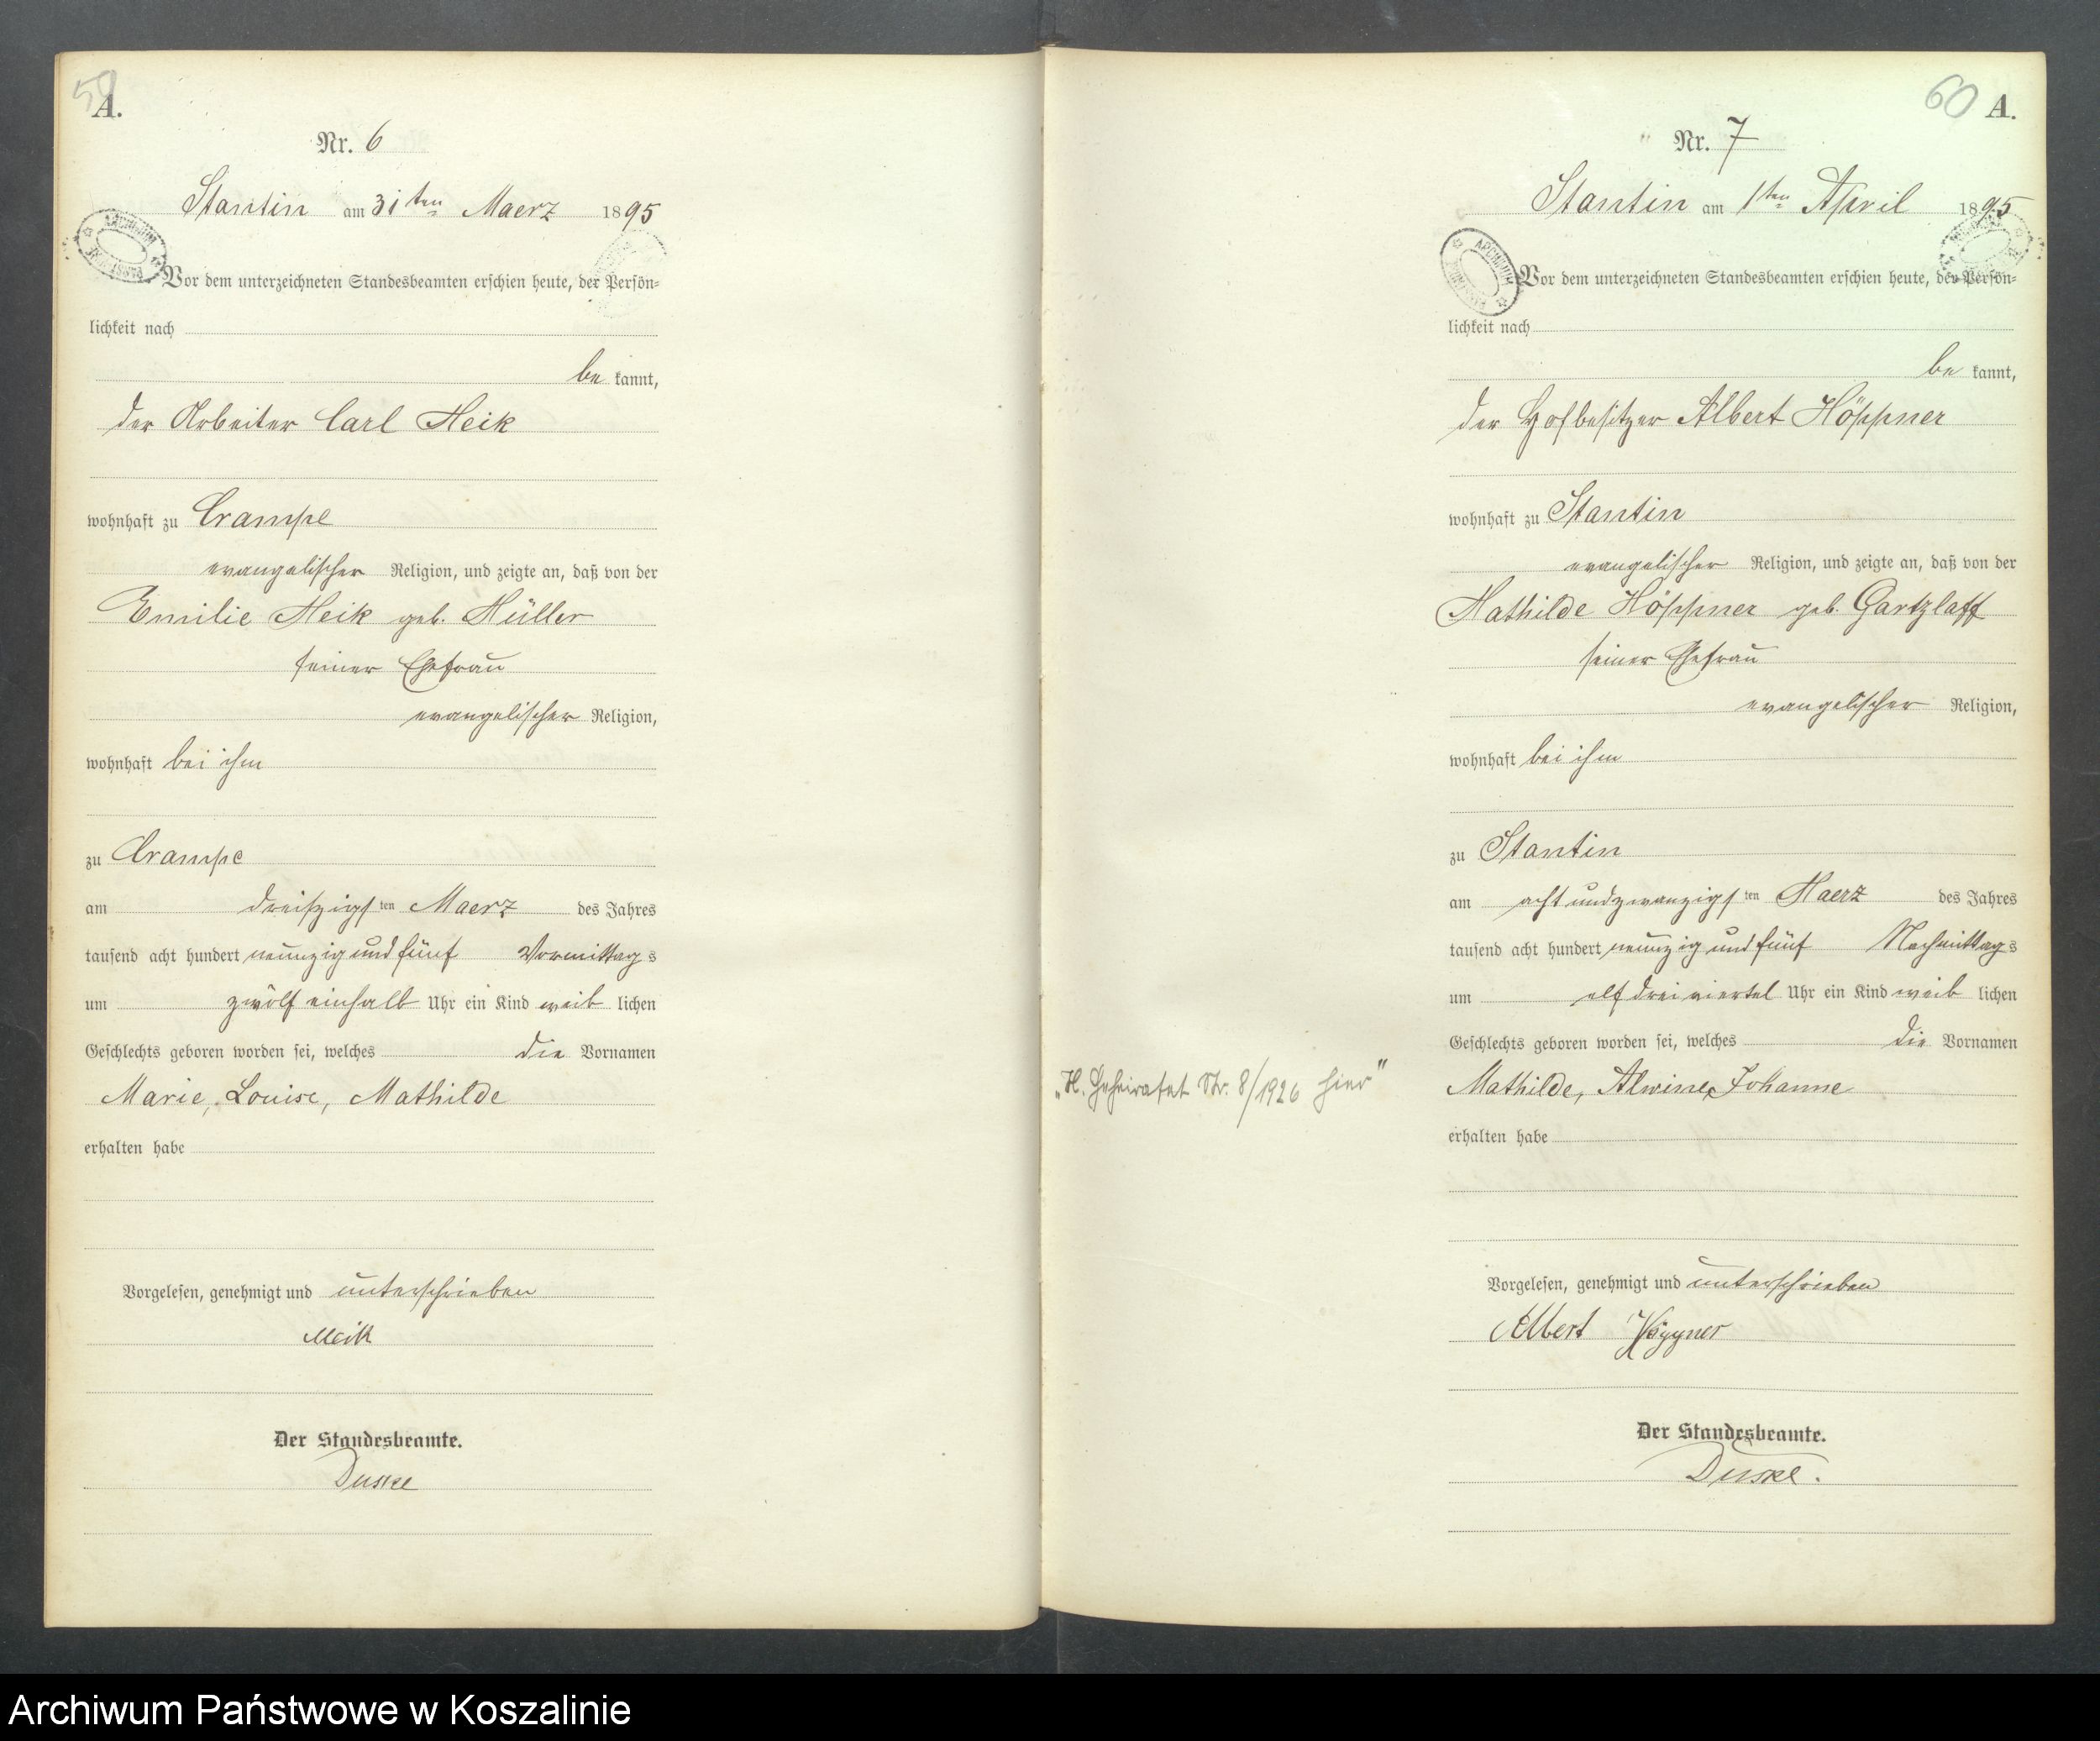 59
A.
Nr. 6
Stantin am 31ten Maerz 1895
Vor dem unterzeichneten Standesbeamten erschien heute, der Persön-
lichkeit nach
be kannt,
der Arbeiter Carl Meik
wohnhaft zu Crampe
evangelischer Religion, und zeigte an, daß von der
Emilie Meik geb. Müller
seiner Ehefrau
evangelischer Religion,
wohnhaft bei ihm
zu Crampe
am dreißigsten Maerz des Jahres
tausend acht hundert neunzig und fünf Vormittags
um zwölf einhalb Uhr ein Kind weiblichen
Geschlechts geboren worden sei, welches die Vornamen
Marie, Louise, Mathilde
erhalten habe
Vorgelesen, genehmigt und unterschrieben
Meik
Der Standesbeamte.
Duske
60 A.
Nr. 7
Stantin am 1ten April 1895
Vor dem unterzeichneten Standesbeamten erschien heute, der Persön-
lichkeit nach
be kannt,
der Hofbesitzer Albert Höppner
wohnhaft zu Stantin
evangelischer Religion, und zeigte an, daß von der
Mathilde Höppner geb. Gartzlaff
seiner Ehefrau
evangelischer Religion,
wohnhaft bei ihm
zu Stantin
am acht und zwanzigsten Maerz des Jahres
tausend acht hundert neunzig und fünf Nachmittags
um elf dreiviertel Uhr ein Kind weiblichen
Geschlechts geboren worden sei, welches die Vornamen
„H. Geheiratet Nr. 8/1926 hier"
Mathilde, Alwine, Johanne
erhalten habe
Vorgelesen, genehmigt und unterschrieben
Albert Höppner
Der Standesbeamte.
Duske.
Archiwum Państwowe w Koszalinie